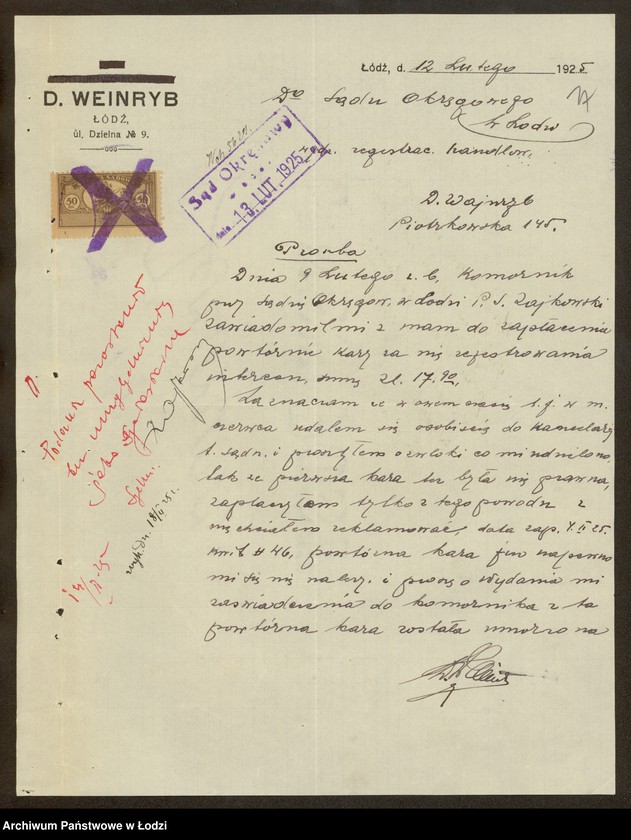 D. WEINRYB
ŁÓDŹ,
ul. Dzielna № 9.
ŁÓDŹ, d. 12 Lutego 1925
Do Sądu Okręgowego
w Łodzi
registrac. handlow.
D. Wajnryb
Piotrkowska 145.
Sąd Okręgowy
dnia 13. LUT. 1925
50 50
Prośba
Dnia 9 Lutego r. b, Komornik
przy Sądzie Okręgow. w Łodzi P. S. Zajkowski
zawiadomił mi z mam do zapłacenia
powtórnie kary za nie rejestrowania
interesu, sumę zł. 17,90,
Zaznaczam że w swem czasie t. j. w m.
czerwcu udałem się osobiście do kancelarji
t. sądu. i prosiłem o zwłoki co mi udzielono
tak że pierwsza kara też była nie prawna,
zapłaciłem tylko z tego powodu z
nie chciałem reklamować, data zap. 7. II 25.
kwit # 46, powtórna kara już napewno
mi się nie należy. i proszę o wydania mi
zaświadczenia do komornika z ta
powtórna kara została umorzona
Podanie pozostawić
bez uwzględnienia
jako
wysł. dn. 18/II 25 r.